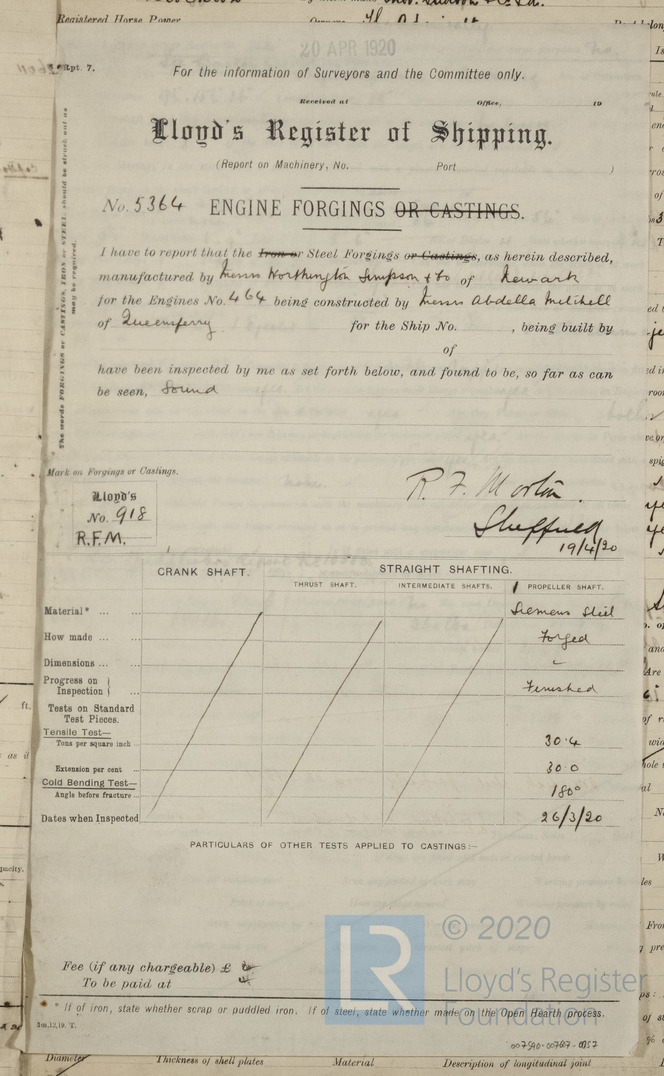 Registered Horse Power
20 APR 1920
Rpt. 7.
For the information of Surveyors and the Committee only.
Received at Office, 19
Lloyd's Register of Shipping.
(Report on Machinery, No. Port )
No. 5364 ENGINE FORGINGS OR CASTINGS.
The words FORGINGS or CASTINGS, IRON or STEEL should be struck out as may be required.
I have to report that the Iron or Steel Forgings or Castings, as herein described,
manufactured by Messrs Worthington Simpson & Co of Newark
for the Engines No. 464 being constructed by Messrs Abdella Mitchell
of Queensferry for the Ship No. , being built by
of
have been inspected by me as set forth below, and found to be, so far as can
be seen, Sound
Mark on Forgings or Castings.
Lloyd's
No. 918
R.F.M.
R. F. Morton.
Sheffield
19/4/20
CRANK SHAFT. STRAIGHT SHAFTING.
THRUST SHAFT. INTERMEDIATE SHAFTS. 1 PROPELLER SHAFT.
Material* ... ... Siemens Steel
How made ... ... Forged
Dimensions ... ...
Progress on Inspection } ... Finished
Tests on Standard
Test Pieces.
Tensile Test—
Tons per square inch ... 30.4
Extension per cent ... 30.0
Cold Bending Test—
Angle before fracture... 180°
Dates when Inspected 26/3/20
PARTICULARS OF OTHER TESTS APPLIED TO CASTINGS:—
Fee (if any chargeable) £
To be paid at
* If of iron, state whether scrap or puddled iron. If of steel, state whether made on the Open Hearth process.
3m,12,19. T.
© 2020
LR
Lloyd's Register
Foundation
007590-007607-0057
Diameter Thickness of shell plates Material Description of longitudinal joint